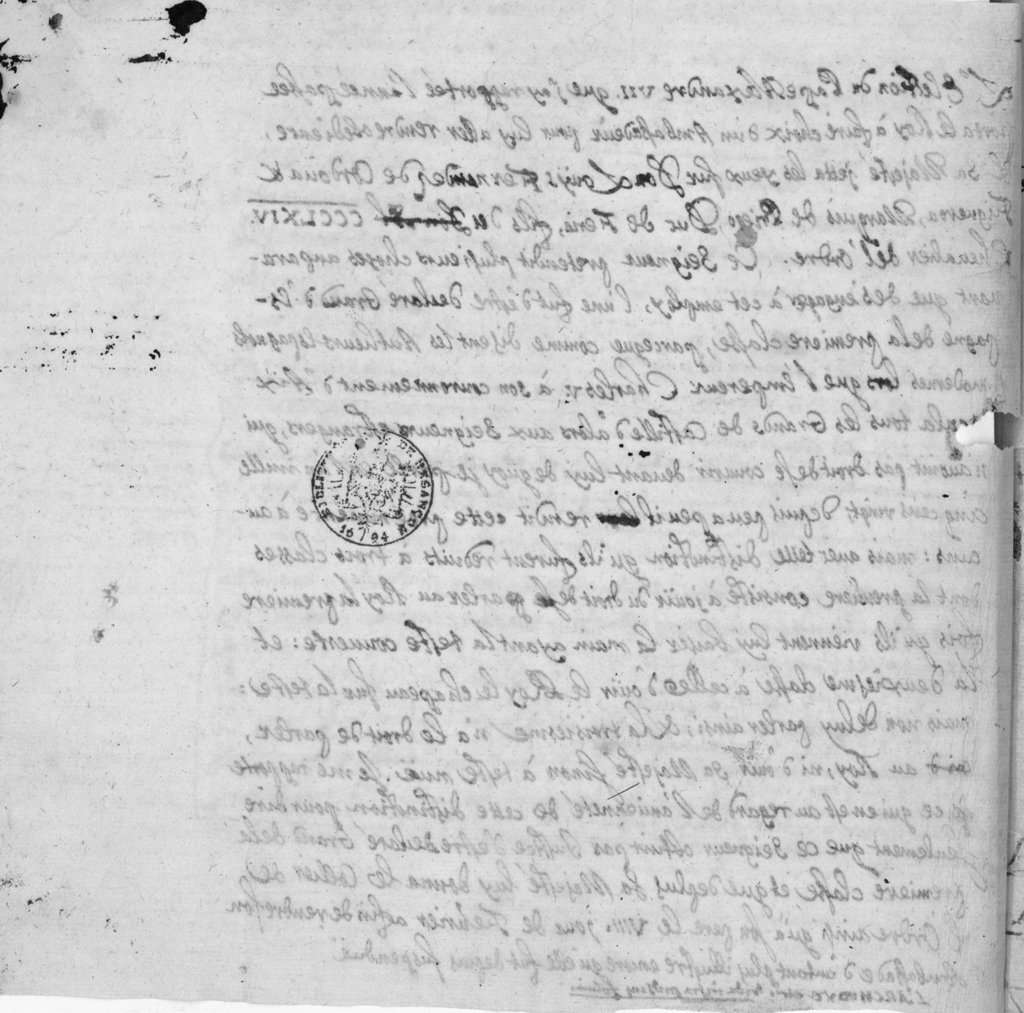 L'Election du Pape Alexandre VII. que j'ay rapportée l'année passée
le Roy à faire choix d'un Ambassadeur pour luy aller rendre obedience,
& sa Majesté jetta les yeux sur Don Louys Fernandez de Cordoüa &
Figueroa, Marquis de Priego Duc de Feria, fils du
CCCLXIV.
Chevalier de l'Ordre. Ce Seigneur pretendit plusieurs choses aupara-
uant que de s'engager à cet employ, l'une fut d'estre declaré Grand d'Es-
pagne de la premiere classe, parceque comme disent les Autheurs Espagnols
modernes lors que l'Empereur Charles v. à son couronnement d'Aix
la tous les Grands de Castille d'alors aux Seigneurs estrangers, qui
n'auoient pas droit de se couurir deuant luy dequoy je mille
cinq cens vingt, depuis peu a peu il rendit cette à au-
cuns: mais auec telle distinction qu'ils furent reduits à trois classes
dont la premiere consiste à joüir du droit de parler au Roy la premiere
fois qu'ils viennent luy baiser la main ayant la teste couuerte: et
la deuxiesme classe à celle d'oüir le Roy le chapeau sur la teste:
mais non de luy parler ainsi; & la troisiesme n'a le droit de parler,
au Roy, ni d'oüir sa Majesté sinon à teste nuë. Je me rapporte
à ce qui en est au regard de l'ancienneté de cette distinction pour dire
seulement que ce Seigneur obtint pas Justice d'estre declaré Grand de la
premiere classe et que de plus sa Majesté luy donna le Collier de
l'Ordre ainsi qu'à son pere le VIII. jour de Feurier afin de rendre son
Ambassade d'autant plus illustre encore qu'elle fut depuis suspenduë
DE BESANÇON
1694